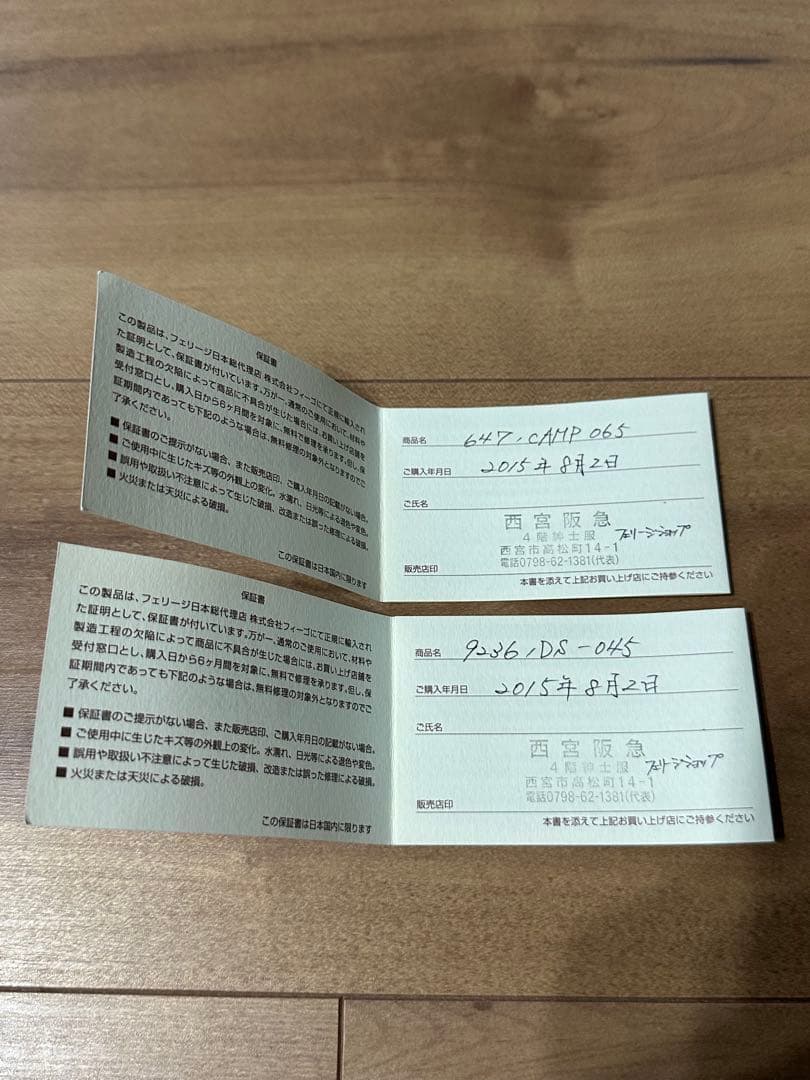 保証書
この製品は、フェリージ日本総代理店 株式会社フィーゴにて正規に輸入され
た証明として、保証書が付いています。万が一、通常のご使用において、材料や
製造工程の欠陥によって商品に不具合が生じた場合には、お買い上げ店舗を
受付窓口とし、購入日から6ヶ月間を対象に、無料で修理を承ります。但し、保
証期間内であっても下記のような場合は、無料修理の対象外となりますのでご
了承ください。
■ 保証書のご提示がない場合、また販売店印、ご購入年月日の記載がない場合。
■ ご使用中に生じたキズ等の外観上の変化。水濡れ、日光等による退色や変色。
■ 誤用や取扱い不注意によって生じた破損、改造または誤った修理による破損。
■ 火災または天災による破損。
この保証書は日本国内に限ります
商品名 647.CAMP 065
ご購入年月日 2015年8月2日
ご氏名
西宮阪急
4階紳士服 フェリージショップ
西宮市高松町14-1
電話0798-62-1381(代表)
販売店印
本書を添えて上記お買い上げ店にご持参ください
保証書
この製品は、フェリージ日本総代理店 株式会社フィーゴにて正規に輸入され
た証明として、保証書が付いています。万が一、通常のご使用において、材料や
製造工程の欠陥によって商品に不具合が生じた場合には、お買い上げ店舗を
受付窓口とし、購入日から6ヶ月間を対象に、無料で修理を承ります。但し、保
証期間内であっても下記のような場合は、無料修理の対象外となりますのでご
了承ください。
■ 保証書のご提示がない場合、また販売店印、ご購入年月日の記載がない場合。
■ ご使用中に生じたキズ等の外観上の変化。水濡れ、日光等による退色や変色。
■ 誤用や取扱い不注意によって生じた破損、改造または誤った修理による破損。
■ 火災または天災による破損。
この保証書は日本国内に限ります
商品名 9236.DS-045
ご購入年月日 2015年8月2日
ご氏名
西宮阪急
4階紳士服 フェリージショップ
西宮市高松町14-1
電話0798-62-1381(代表)
販売店印
本書を添えて上記お買い上げ店にご持参ください